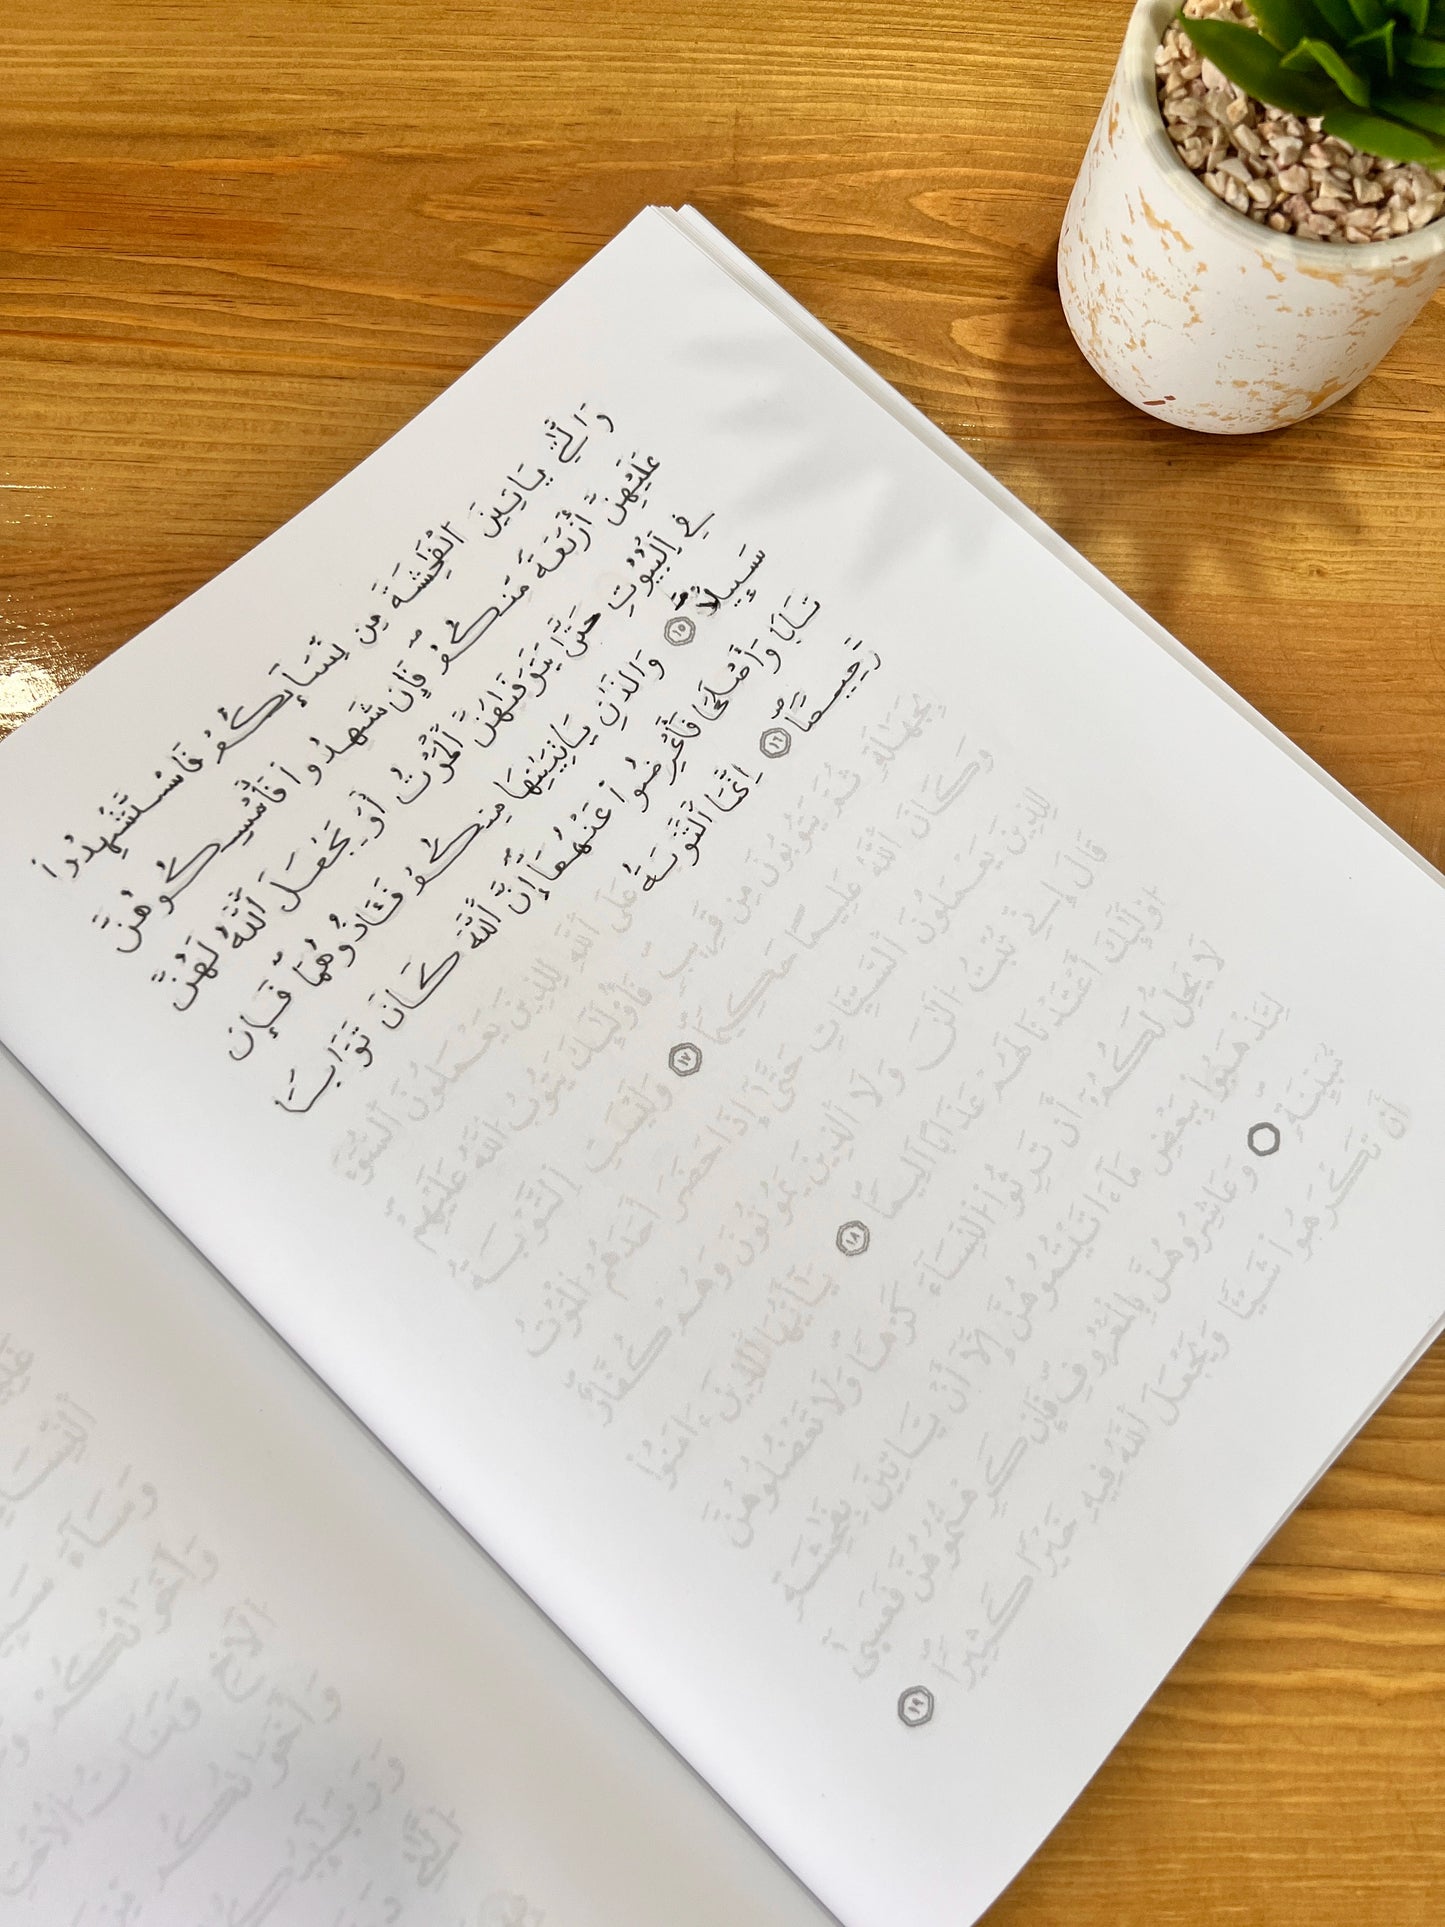 وَالَّٰتِے يَاتِينَ اَلْفَٰحِشَةَ مِن نِّسَآئِكُمْ فَاسْتَشْهِدُواْ
عَلَيْهِنَّ أَرْبَعَةً مِّنكُمْ فَإِن شَهِدُواْ فَأَمْسِكُوهُنَّ
فِے اِلْبُيُوتِ حَتَّىٰ يَتَوَفَّيٰهُنَّ اَلْمَوْتُ أَوْ يَجْعَلَ اَللَّهُ لَهُنَّ
سَبِيلًا ١٥ وَالذَٰنِ يَاتِيَٰنِهَا مِنكُمْ فَـَٔاذُوهُمَا فَإِن
تَابَا وَأَصْلَحَا فَأَعْرِضُواْ عَنْهُمَا إِنَّ اَللَّهَ كَانَ تَوَّاباً
رَّحِيماً ١٦ اِنَّمَا اَلتَّوْبَةُ عَلَى اَللَّهِ لِلذِينَ يَعْمَلُونَ اَلسُّوٓءَ
بِجَهَٰلَةٍ ثُمَّ يَتُوبُونَ مِن قَرِيبٍ فَأُوْلَٰٓئِكَ يَتُوبُ اُللَّهُ عَلَيْهِمْ
وَكَانَ اَللَّهُ عَلِيماً حَكِيماً ١٧ وَلَيْسَتِ اِلتَّوْبَةُ
لِلذِينَ يَعْمَلُونَ اَلسَّيِّـَٔاتِ حَتَّىٰ إِذَا حَضَرَ أَحَدَهُمُ اُلْمَوْتُ
قَالَ إِنِّے تُبْتُ اُلَٰنَ وَلَا اَلذِينَ يَمُوتُونَ وَهُمْ كُفَّارٌ
أُوْلَٰٓئِكَ أَعْتَدْنَا لَهُمْ عَذَاباً أَلِيماً ١٨ يَٰٓأَيُّهَا اَلذِينَ ءَامَنُواْ
لَا يَحِلُّ لَكُمُۥٓ أَن تَرِثُواْ اُلنِّسَآءَ كَرْهاً وَلَا تَعْضُلُوهُنَّ
لِتَذْهَبُواْ بِبَعْضِ مَآ ءَاتَيْتُمُوهُنَّ إِلَّآ أَنْ يَّاتِينَ بِفَٰحِشَةٍ
مُّبَيِّنَةٍ وَعَاشِرُوهُنَّ بِالْمَعْرُوفِ فَإِن كَرِهْتُمُوهُنَّ فَعَسَىٰٓ
أَن تَكْرَهُواْ شَيْـٔاً وَيَجْعَلَ اَللَّهُ فِيهِ خَيْراً كَثِيراً ١٩
وَسَآءَ
وَأَخَوَٰتُكُمْ
اَلَاخِ وَبَنَاتُ اُلُاخْتِ
وَأَخَوَٰتُكُم